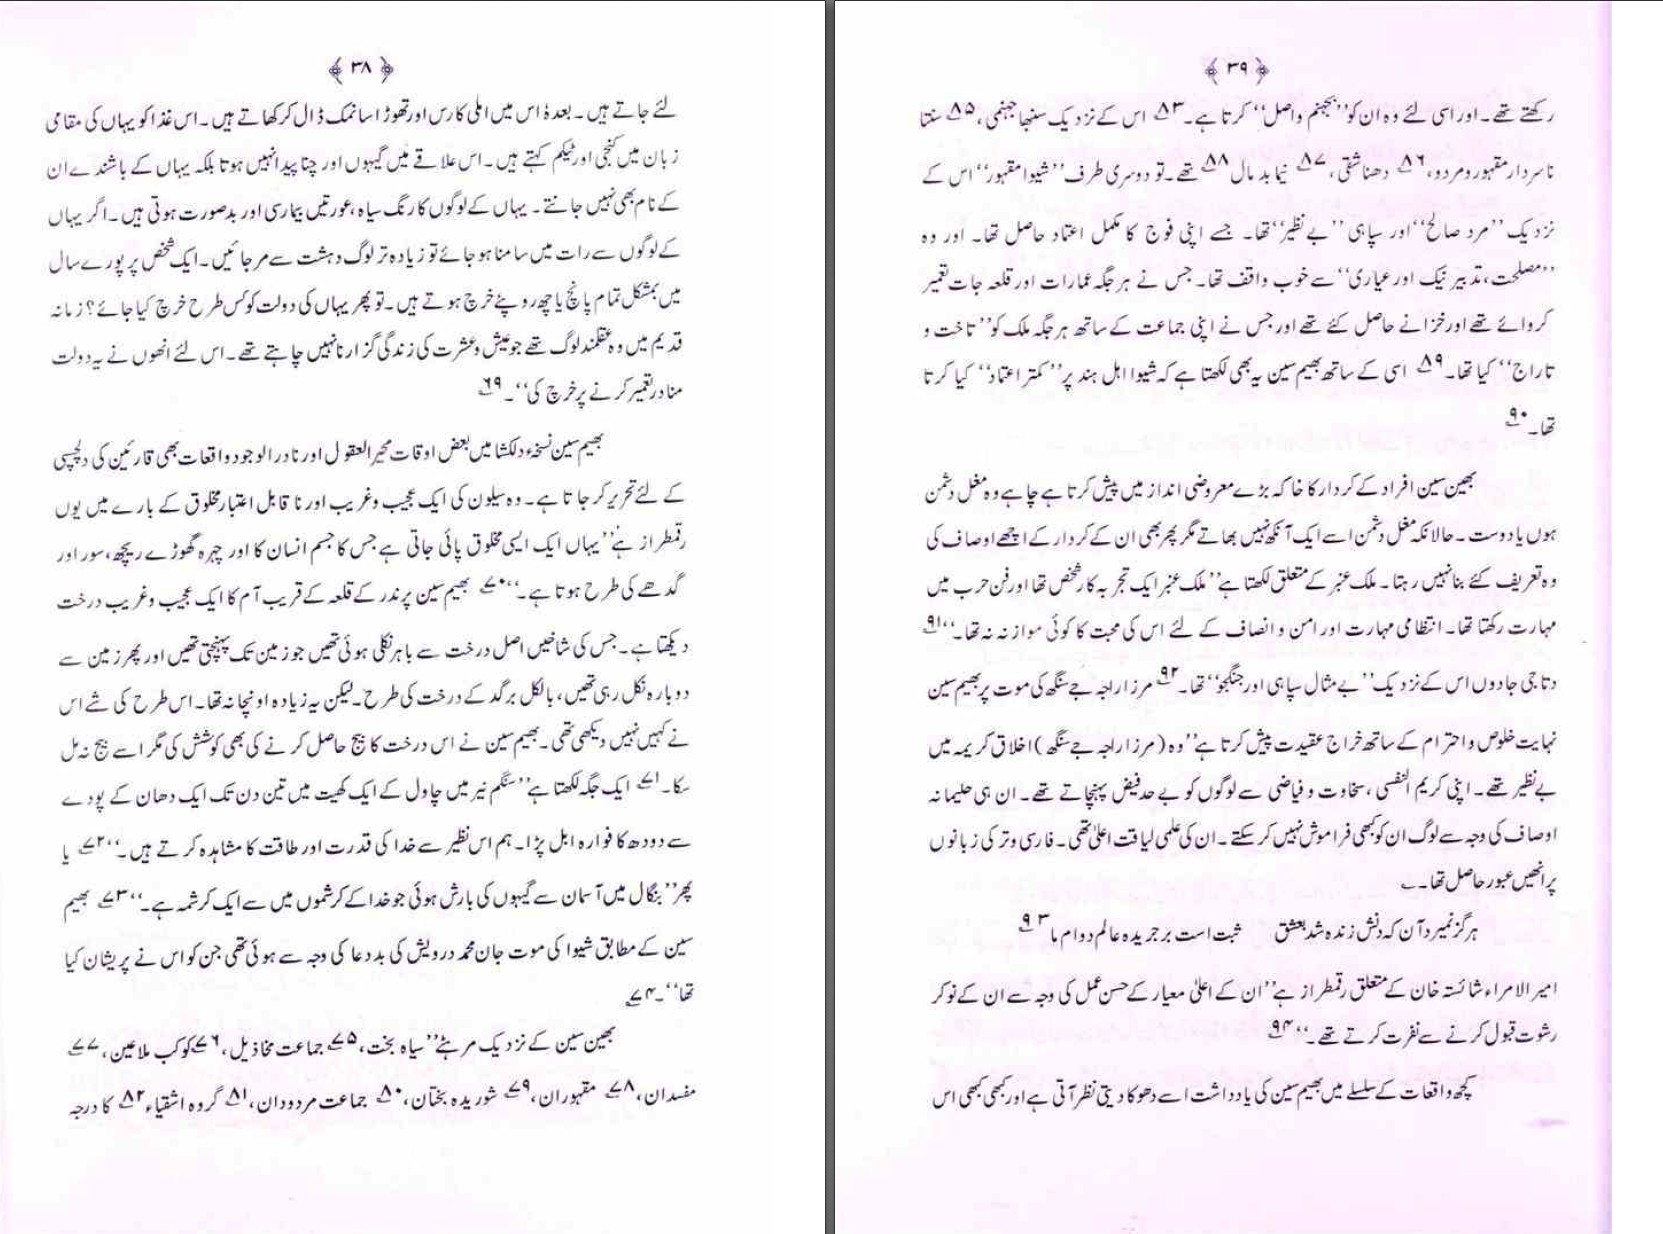 ﴿ ۳۸ ﴾
لئے جاتے ہیں۔ بعدۂ اس میں املی کا رس اور تھوڑا سا نمک ڈال کر کھاتے ہیں۔ اس غذا کو یہاں کی مقامی
زبان میں کنجی اور ٹیکم کہتے ہیں۔ اس علاقے میں گیہوں اور چنا پیدا نہیں ہوتا بلکہ یہاں کے باشندے ان
کے نام بھی نہیں جانتے۔ یہاں کے لوگوں کا رنگ سیاہ، عورتیں بیمار سی اور بدصورت ہوتی ہیں۔ اگر یہاں
کے لوگوں سے رات میں سامنا ہو جائے تو زیادہ تر لوگ دہشت سے مر جائیں۔ ایک شخص پر پورے سال
میں بمشکل تمام پانچ یا چھ روپئے خرچ ہوتے ہیں۔ تو پھر یہاں کی دولت کو کس طرح خرچ کیا جائے؟ زمانہ
قدیم میں وہ عقلمند لوگ تھے جو عیش و عشرت کی زندگی گزارنا نہیں چاہتے تھے۔ اس لئے انھوں نے یہ دولت
منادر تعمیر کرنے پر خرچ کی‘‘۔ ۶۹
بھیم سین نسخہء دلکشا میں بعض اوقات محیر العقول اور نادر الوجود واقعات بھی قارئین کی دلچسپی
کے لئے تحریر کر جاتا ہے۔ وہ سیلون کی ایک عجیب و غریب اور نا قابل اعتبار مخلوق کے بارے میں یوں
رقمطراز ہے’’ یہاں ایک ایسی مخلوق پائی جاتی ہے جس کا جسم انسان کا اور چہرہ گھوڑے ریچھ، سور اور
گدھے کی طرح ہوتا ہے۔‘‘ ۷۰ بھیم سین پرندر کے قلعہ کے قریب آم کا ایک عجیب و غریب درخت
دیکھتا ہے۔ جس کی شاخیں اصل درخت سے باہر نکلی ہوئی تھیں جو زمین تک پہنچتی تھیں اور پھر زمین سے
دوبارہ نکل رہی تھیں، بالکل برگد کے درخت کی طرح۔ لیکن یہ زیادہ اونچا نہ تھا۔ اس طرح کی شے اس
نے کہیں نہیں دیکھی تھی۔ بھیم سین نے اس درخت کا بیج حاصل کرنے کی بھی کوشش کی مگر اسے بیج نہ مل
سکا۔ ۷۱ ایک جگہ لکھتا ہے’’ سنگم نیر میں چاول کے ایک کھیت میں تین دن تک ایک دھان کے پودے
سے دودھ کا فوارہ ابل پڑا۔ ہم اس نظیر سے خدا کی قدرت اور طاقت کا مشاہدہ کرتے ہیں۔‘‘ ۷۲ یا
پھر’’ بنگال میں آسمان سے گیہوں کی بارش ہوئی جو خدا کے کرشموں میں سے ایک کرشمہ ہے۔‘‘ ۷۳ بھیم
سین کے مطابق شیوا کی موت جان محمد درویش کی بددعا کی وجہ سے ہوئی تھی جن کو اس نے پریشان کیا
تھا‘‘۔ ۷۴
بھین سین کے نزدیک مرہٹے’’ سیاہ بخت، ۷۵ جماعت مخاذیل، ۷۶ کوکب ملاعین، ۷۷
مفسدان، ۷۸ مقہوران، ۷۹ شوریدہ بختان، ۸۰ جماعت مردودان، ۸۱ گروہ اشقیاء ۸۲ کا درجہ
﴿ ۳۹ ﴾
رکھتے تھے۔ اور اسی لئے وہ ان کو’’ بجہنم واصل‘‘ کرتا ہے۔ ۸۳ اس کے نزدیک سنبھا جہنمی، ۸۵ سنتا
ناسردار مقہور و مردو، ۸۶ دھنا شقی، ۸۷ نیما بد مال ۸۸ تھے۔ تو دوسری طرف’’ شیوا مقہور‘‘ اس کے
نزدیک’’ مرد صالح‘‘ اور سپاہی’’ بے نظیر‘‘ تھا۔ جسے اپنی فوج کا مکمل اعتماد حاصل تھا۔ اور وہ
’’مصلحت، تدبیر نیک اور عیاری‘‘ سے خوب واقف تھا۔ جس نے ہر جگہ عمارات اور قلعہ جات تعمیر
کروائے تھے اور خزانے حاصل کئے تھے اور جس نے اپنی جماعت کے ساتھ ہر جگہ ملک کو’’ تاخت و
تاراج‘‘ کیا تھا۔ ۸۹ اسی کے ساتھ بھیم سین یہ بھی لکھتا ہے کہ شیوا اہل ہند پر’’ کمتر اعتماد‘‘ کیا کرتا
تھا۔ ۹۰
بھین سین افراد کے کردار کا خاکہ بڑے معروضی انداز میں پیش کرتا ہے چاہے وہ مغل دشمن
ہوں یا دوست۔ حالانکہ مغل دشمن اسے ایک آنکھ نہیں بھاتے مگر پھر بھی ان کے کردار کے اچھے اوصاف کی
وہ تعریف کئے بنا نہیں رہتا۔ ملک عنبر کے متعلق لکھتا ہے’’ ملک عنبر ایک تجربہ کار شخص تھا اور فن حرب میں
مہارت رکھتا تھا۔ انتظامی مہارت اور امن و انصاف کے لئے اس کی محبت کا کوئی موازنہ نہ تھا۔‘‘ ۹۱
دتاجی جادوں اس کے نزدیک’’ بے مثال سپاہی اور جنگجو‘‘ تھا۔ ۹۲ مرزا راجہ جے سنگھ کی موت پر بھیم سین
نہایت خلوص و احترام کے ساتھ خراج عقیدت پیش کرتا ہے’’ وہ (مرزا راجہ جے سنگھ) اخلاق کریمہ میں
بے نظیر تھے۔ اپنی کریم النفسی، سخاوت و فیاضی سے لوگوں کو بے حد فیض پہنچاتے تھے۔ ان ہی حلیمانہ
اوصاف کی وجہ سے لوگ ان کو کبھی فراموش نہیں کر سکتے۔ ان کی علمی لیاقت اعلیٰ تھی۔ فارسی و تر کی زبانوں
پر انھیں عبور حاصل تھا۔
ہرگز نمیرد آن کہ دلش زندہ شد بعشق ثبت است بر جریدہ عالم دوام ما ۹۳
امیر الامراء شائستہ خان کے متعلق رقمطراز ہے’’ ان کے اعلیٰ معیار کے حسن عمل کی وجہ سے ان کے نوکر
رشوت قبول کرنے سے نفرت کرتے تھے۔‘‘ ۹۴
کچھ واقعات کے سلسلے میں بھیم سین کی یادداشت اسے دھوکا دیتی نظر آتی ہے اور کبھی کبھی اس